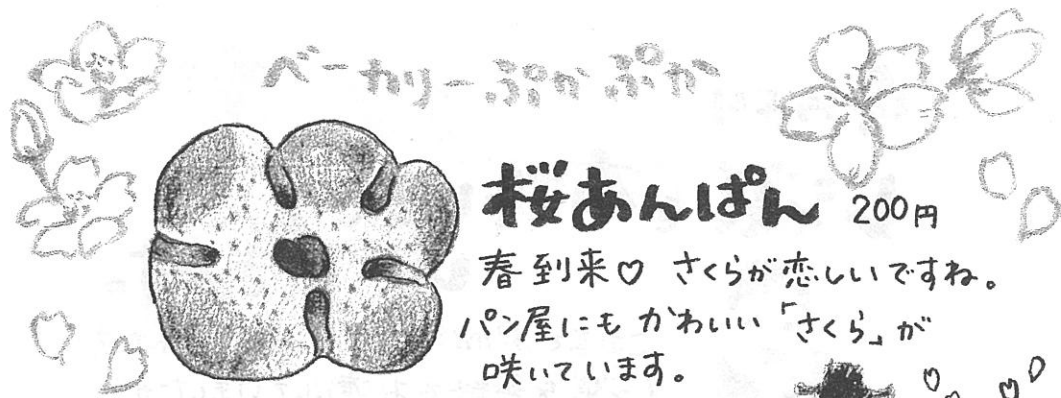 ベーカリーぷかぷか
桜あんぱん 200円
春到来♡ さくらが恋しいですね。
パン屋にも かわいい「さくら」が
咲いています。